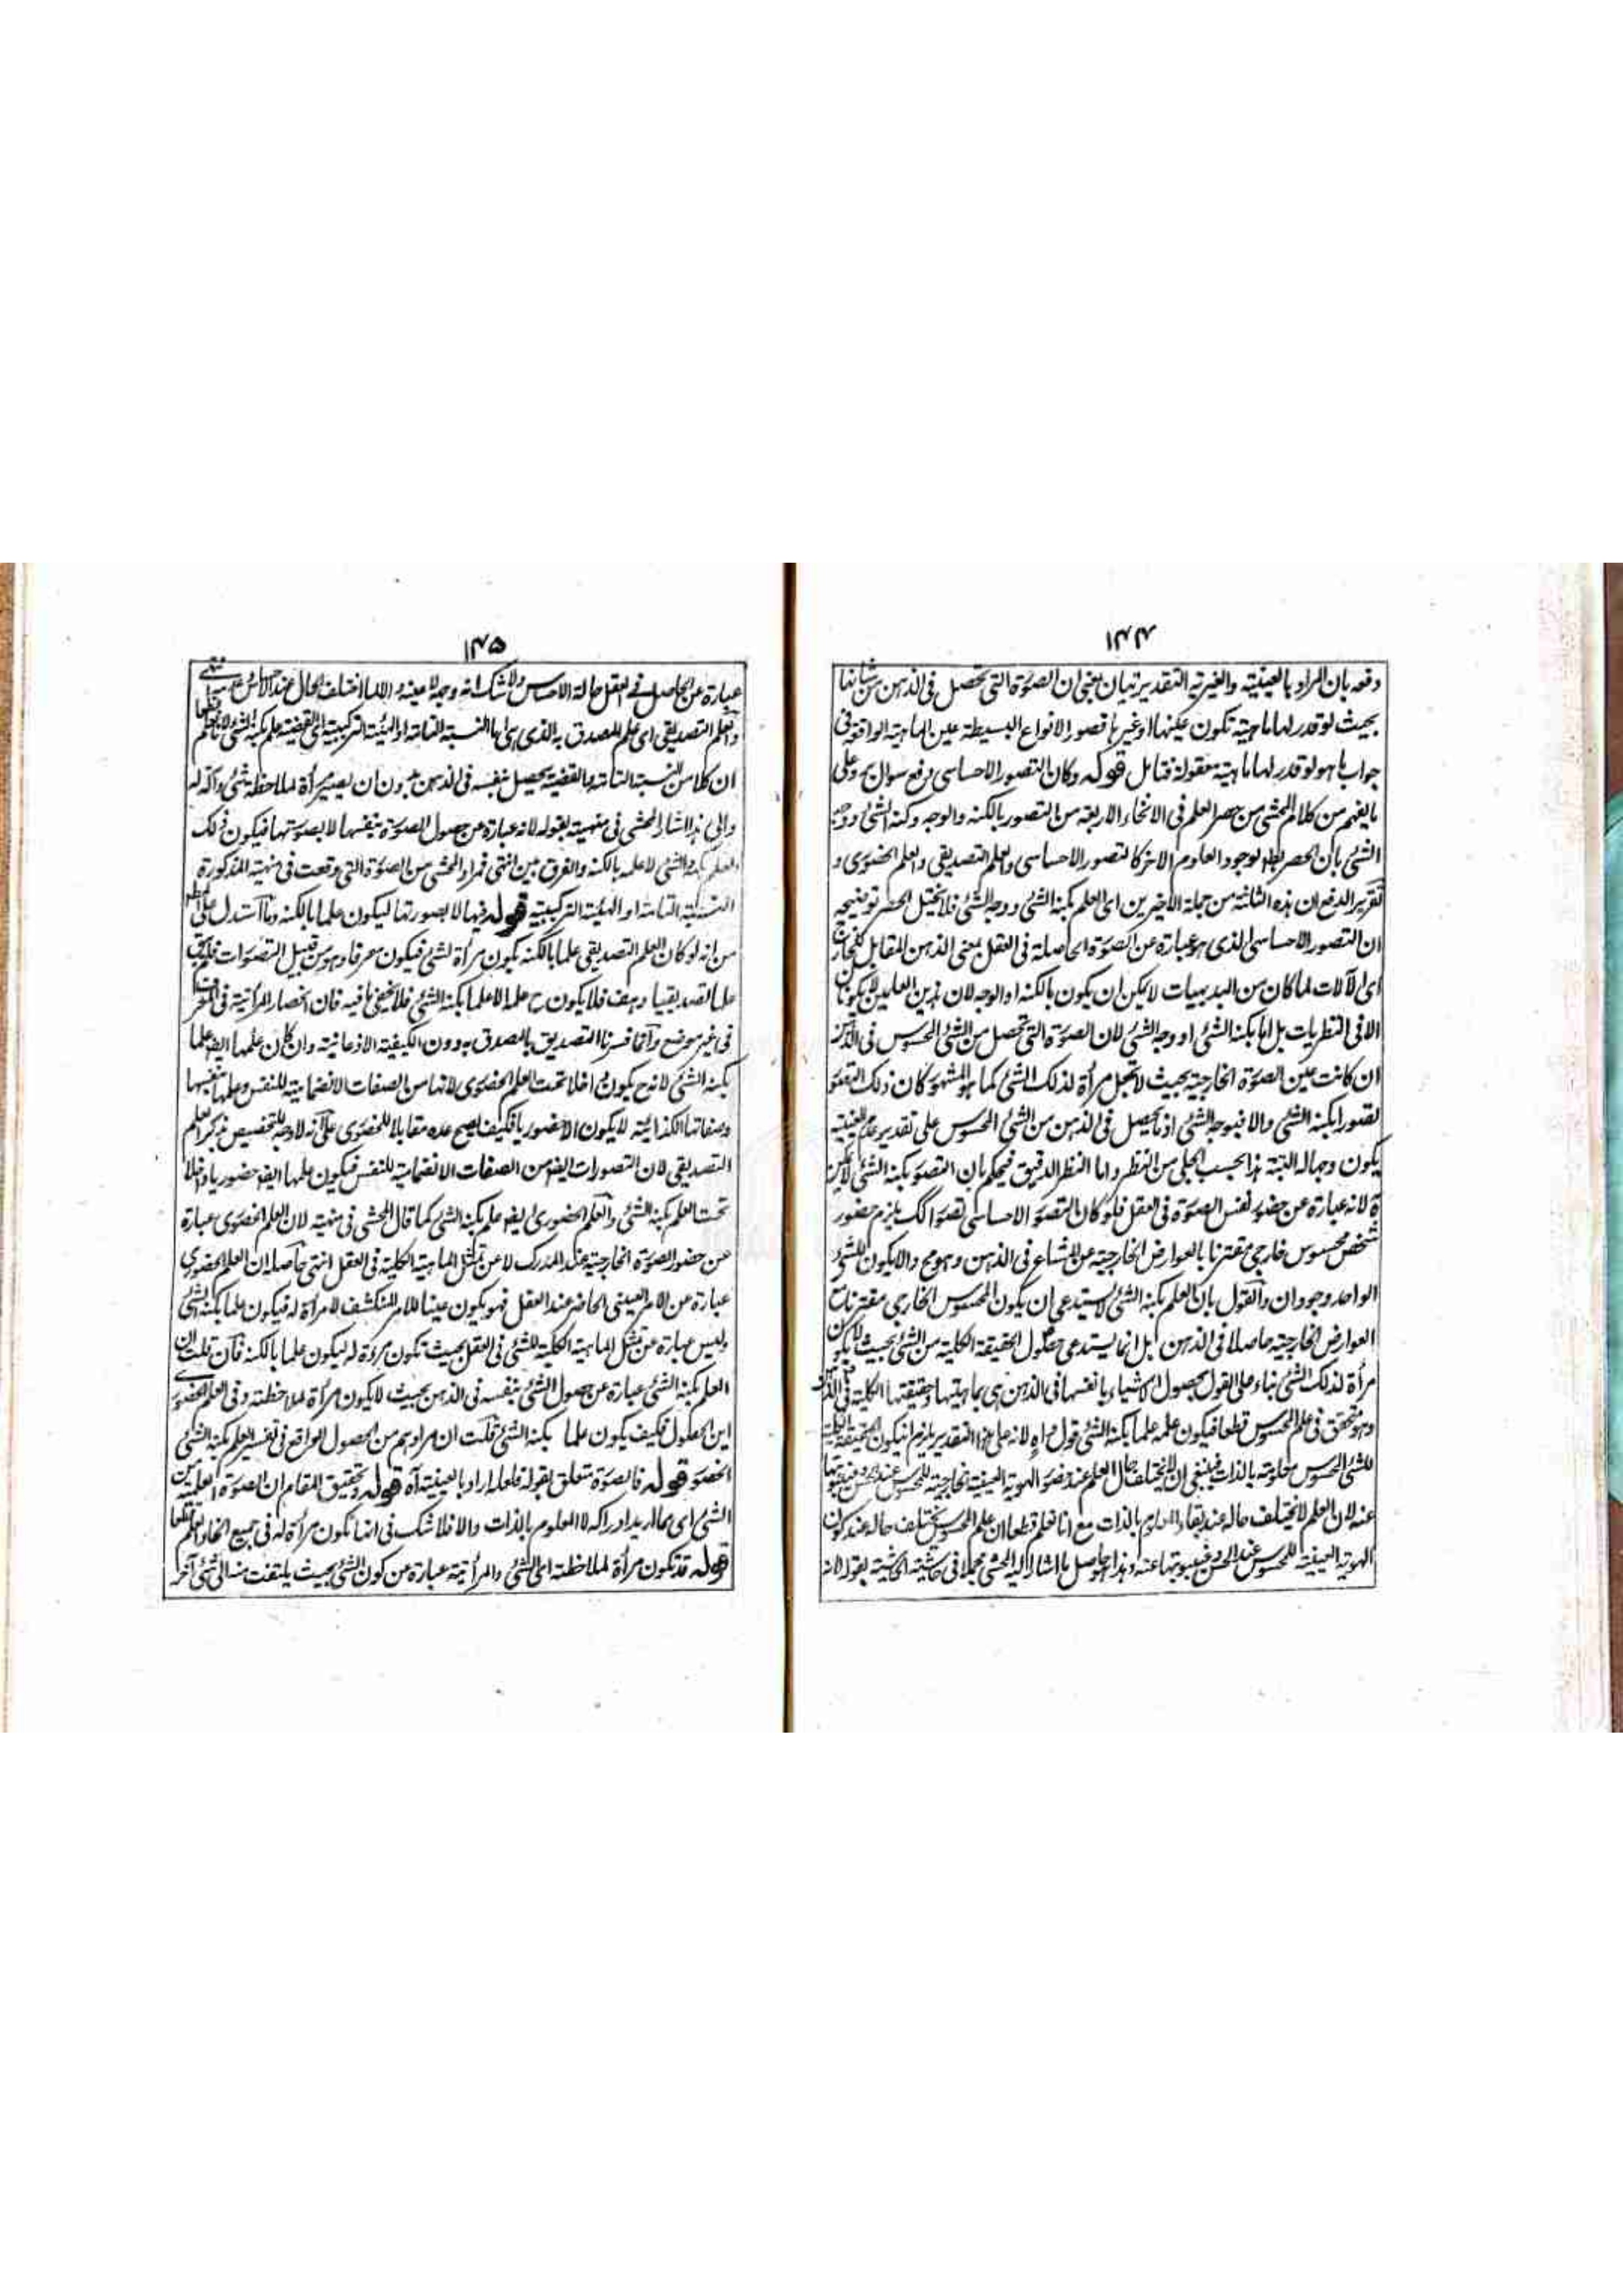 ١٤٤
دفعه بان المراد بالعينية والغيرية التقديريتان يعنى ان الصورة التى تحصل فى الذهن من شانها
بحيث لو قدر لها ماهية تكون عينها او غيرها فصور الانواع البسيطة عين الماهية الواقعة فى
جواب ما هو لو قدر لها ماهية معقولة فتامل قوله وكان التصور الاحساسى يرفع سوال يرد على
ما يفهم من كلام المحشى من حصر العلم فى الانحاء الاربعة من التصور بالكنه والوجه وكنه الشئ ووجه
الشئ بان الحصر باطل لوجود العلوم الاخر كالتصور الاحساسى والعلم التصديقى والعلم الحضورى و
تقرير الدفع ان هذه الثلثة من جملة الاخيرين اى العلم بكنه الشئ ووجه الشئ فلا يختل الحصر توضيحه
ان التصور الاحساسى الذى هو عبارة عن الصورة الحاصلة فى العقل بمعنى الذهن المقابل للخارج
اى الآلات لما كان من البديهيات لا يمكن ان يكون بالكنه او الوجه لان هذين العلمين لا يكونان
الا فى النظريات بل اما بكنه الشئ او وجه الشئ لان الصورة التى تحصل من الشئ المحسوس فى الذهن
ان كانت عين الصورة الخارجية بحيث لا تجعل مرأة لذلك الشئ كما هو المشهور كان ذلك التصور
تصورا بكنه الشئ والا فبوجه الشئ اذ ما يحصل فى الذهن من الشئ المحسوس على تقدير عدم العينية
يكون وجها له البتة هذا بحسب الجلى من النظر واما النظر الدقيق فيحكم بان التصور بكنه الشئ لا يمكن
لانه عبارة عن حضور نفس الصورة فى العقل فلو كان التصور الاحساسى تصورا كك يلزم حضور
شخص محسوس خارجى مقترنا بالعوارض الخارجية عن المشاع فى الذهن وهو مح والا يكون للشئ
الواحد وجودان والقول بان العلم بكنه الشئ لا يستدعى ان يكون المحسوس الخارجى مقترنا مع
العوارض الخارجية حاصلا فى الذهن بل انما يستدعى حصول الحقيقة الكلية من الشئ بحيث لا يكون
مرأة لذلك الشئ بناء على القول بحصول الاشياء بانفسها فى الذهن اى بماهيتها وحقيقتها الكلية فى الذهن
وهو متحقق فى علم المحسوس قطعا فيكون علمه علما بكنه الشئ قول واه لانه على هذا التقدير يلزم ان يكون الحقيقة الكلية
للشئ المحسوس معلومة بالذات فينبغى ان لا يختلف حال العلم عند حضور الهوية العينية الخارجية للمحسوس عند الحس وغيبوبتها
عنه لان العلم لا يختلف حاله عند بقاء المعلوم بالذات مع انا نعلم قطعا ان علم المحسوس يختلف حاله عند كون
الهوية العينية للمحسوس عند الحس وغيبوبتها عنه وهذا حاصل ما اشار اليه المحشى مجملا فى حاشية الحاشية بقوله لانه
١٤٥
عبارة عن الحاصل فى العقل حالة الاحساس ولا شك انه وجهه لا عينه والا لما اختلف الحال عند الاحساس وعدمه انتهى
والعلم التصديقى اى علم المصدق به الذى هى اما النسبة التامة او الهيئة التركيبية اى القضية علم بكنه الشئ لانا نعلم قطعا
ان كلا من النسبة التامة والقضية يحصل بنفسه فى الذهن من دون ان يصير مرأة لملاحظة شئ وآلة له
والى هذا اشار المحشى فى منهيته بقوله لانه عبارة عن حصول الصورة بنفسها لا بصورتها فيكون ذلك
العلم بكنه الشئ لا علمه بالكنه والفرق بين انتهى فمراد المحشى من الصورة التى وقعت فى منهيته المذكورة
النسبة التامة او الهيئة التركيبية قوله فيها لا بصورتها ليكون علما بالكنه وما استدل على
من انه لو كان العلم التصديقى علما بالكنه يكون مرأة لشئ فيكون معرفا وهو من قبيل التصورات فلم يبق
علما تصديقيا وهف فلا يكون ح علمه الا علما بكنه الشئ فلا يخفى ما فيه فان انحصار المرأتية فى المعرف
فى غير موضع وانما فسرنا التصديق بالمصدق به دون الكيفية الاذعانية وان كان علمها ايضا علما
بكنه الشئ لانه ح يكون داخلا تحت العلم الحضورى لانها من الصفات الانضمامية للنفس وعلمها بنفسها
وصفاتها الكذائية لا يكون الا حضوريا فكيف يصح عده مقابلا للحضورى على انه لا وجه لتخصيص ذكر العلم
التصديقى لان التصورات ايضا من الصفات الانضمامية للنفس فيكون علمها ايضا حضوريا داخلا
تحت العلم بكنه الشئ والعلم الحضورى ايضا علم بكنه الشئ كما قال المحشى فى منهيته لان العلم الحضورى عبارة
عن حضور الصورة الخارجية عند المدرك لا عن تمثل الماهية الكلية فى العقل انتهى حاصله ان العلم الحضورى
عبارة عن الامر العينى الحاضر عند العقل فهو يكون عينا للامر المنكشف لا مرأة له فيكون علما بكنه الشئ
وليس عبارة عن تمثل الماهية الكلية للشئ فى العقل بحيث تكون مرءة له ليكون علما بالكنه فان قلت ان
العلم بكنه الشئ عبارة عن حصول الشئ بنفسه فى الذهن بحيث لا يكون مرأة لملاحظته وفى العلم الحضورى
اين الحصول فكيف يكون علما بكنه الشئ قلت ان مرادهم من الحصول الواقع فى تفسير العلم بكنه الشئ
الحضور قوله فالصورة متعلق بقوله فلعله اراد بالعينية آه قوله وتحقيق المقام ان الصورة العلمية من
الشئ اى ما اريد ادراكه لا المعلوم بالذات والا فلا شك فى انها تكون مرأة له فى جميع انحاء العلم قطعا
قوله قد تكون مرأة لملاحظته اى الشئ والمرأتية عبارة عن كون الشئ بحيث يلتفت منه الى شئ آخر